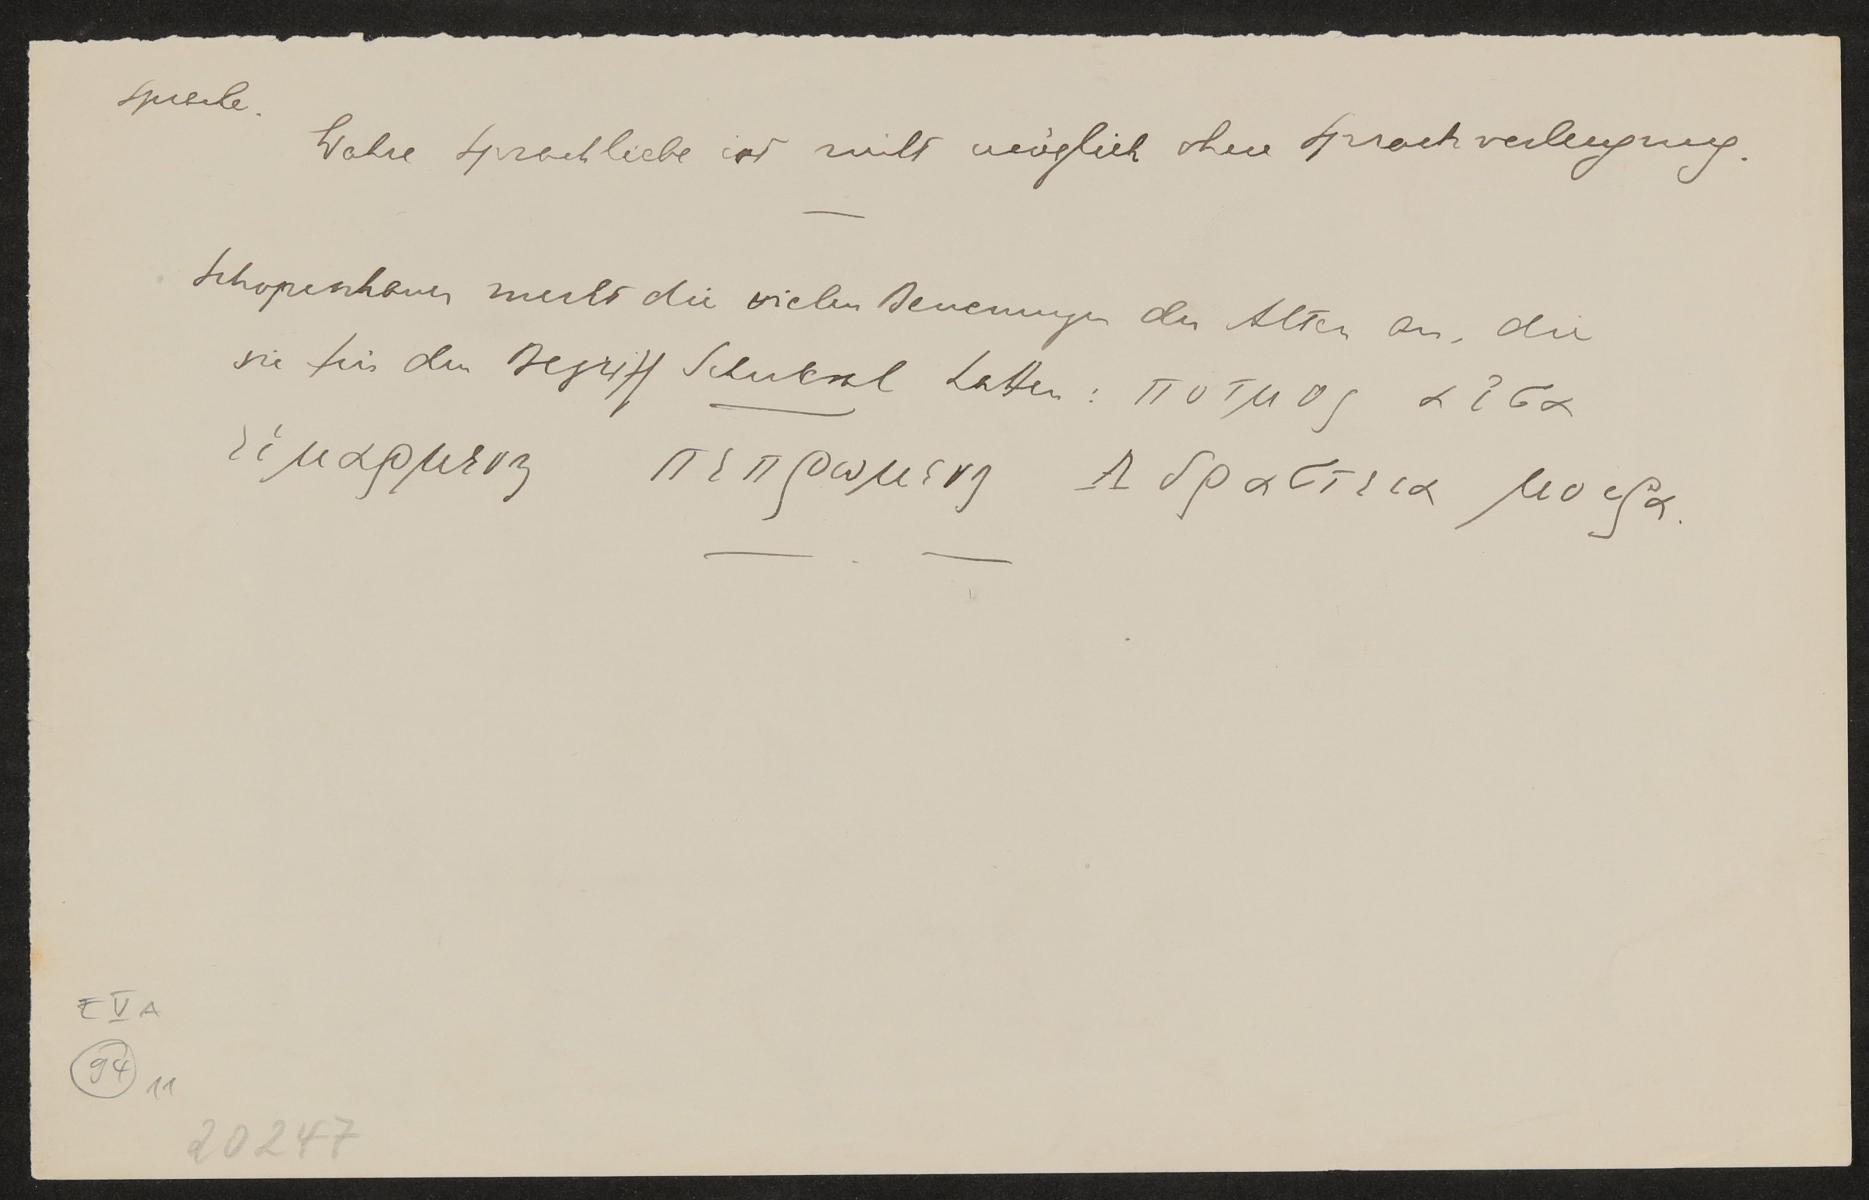 Sprache.
Wahre Sprachliebe ist nicht möglich ohne Sprachverleugnung.
Schopenhauer merkt die vielen Benennungen der Alten an, die
sie für den Begriff Schicksal hatten: ποτμος αἶσα
εἱμαρμενη πεπρωμενη Αδραστεια μοιρα.
E V A
94 11
20247